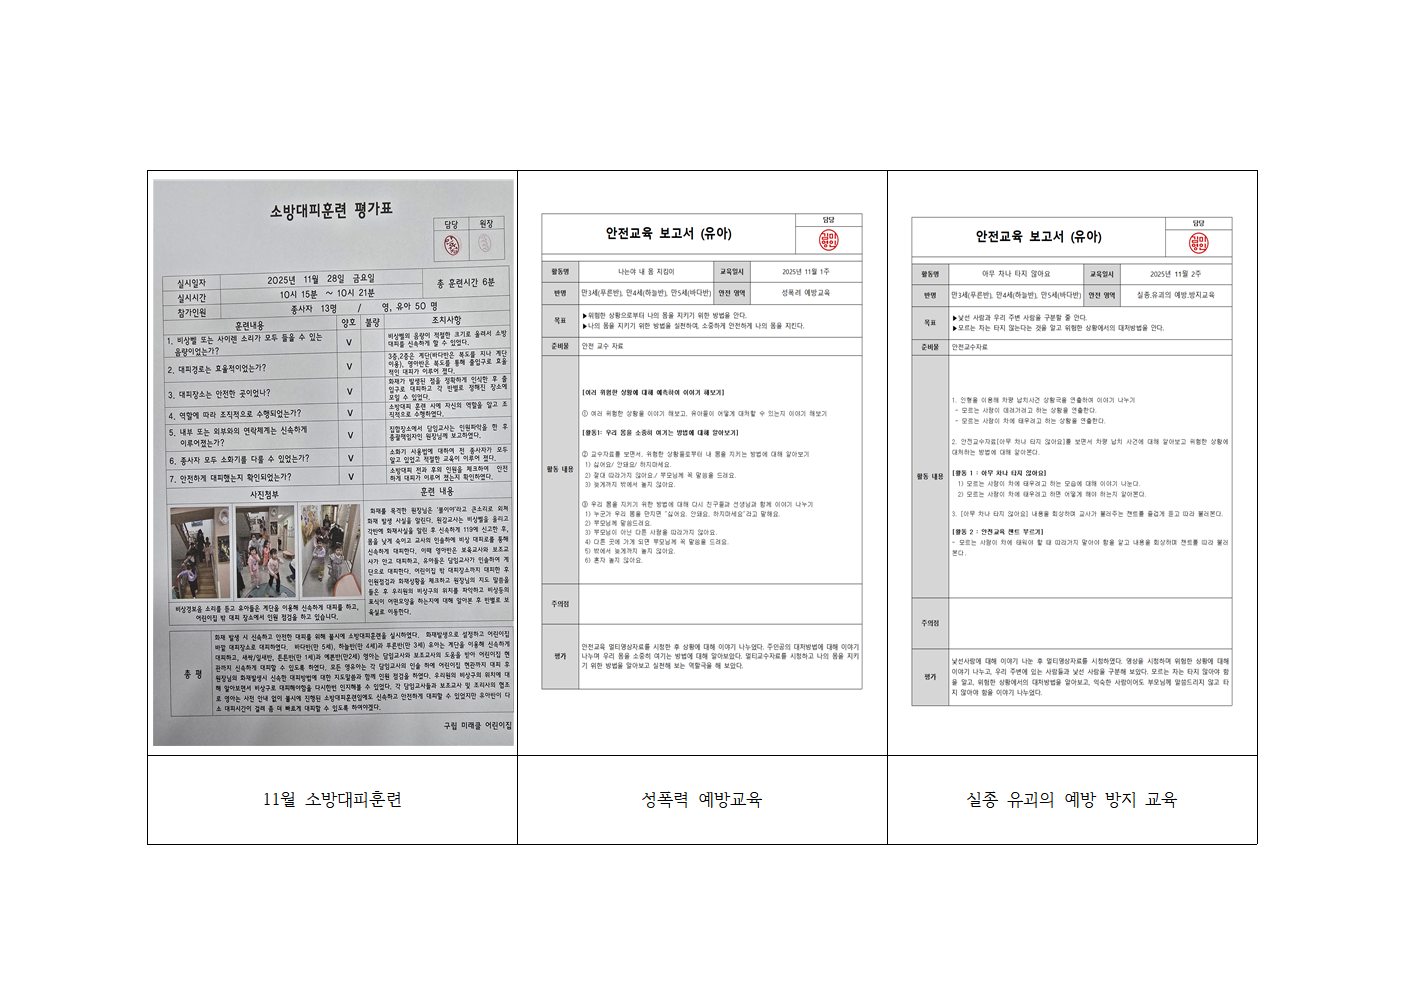 소방대피훈련 평가표
담당 원장
실시일자 2025년 11월 28일 금요일
실시시간 10시 15분 ~ 10시 21분
총 훈련시간 6분
참가인원 종사자 13명 / 영, 유아 50 명
훈련내용 양호 불량 조치사항
1. 비상벨 또는 사이렌 소리가 모두 들을 수 있는
음량이었는가?
V
비상벨의 음량이 적절한 크기로 울려서 소방
대피를 신속하게 할 수 있었다.
2. 대피경로는 효율적이었는가?
V
3층,2층은 계단(바다반은 복도를 지나 계단
이용), 영아반은 복도를 통해 출입구로 효율
적인 대피가 이루어 졌다.
3. 대피장소는 안전한 곳이었나?
V
화재가 발생된 점을 정확하게 인식한 후 출
입구로 대피하고 각 반별로 정해진 장소에
모일 수 있었다.
4. 역할에 따라 조직적으로 수행되었는가?
V
소방대피 훈련 시에 자신의 역할을 알고 조
직적으로 수행하였다.
5. 내부 또는 외부와의 연락체계는 신속하게
이루어졌는가?
V
집합장소에서 담임교사는 인원파악을 한 후
총괄책임자인 원장님께 보고하였다.
6. 종사자 모두 소화기를 다룰 수 있었는가?
V
소화기 사용법에 대하여 전 종사자가 모두
알고 있었고 적절한 교육이 이루어 졌다.
7. 안전하게 대피했는지 확인되었는가?
V
소방대피 전과 후의 인원을 체크하여 안전
하게 대피가 이루어 졌는지 확인하였다.
사진첨부 훈련 내용
화재를 목격한 원장님은 '불이야'라고 큰소리로 외쳐
화재 발생 사실을 알린다. 원감교사는 비상벨을 울리고
각반에 화재사실을 알린 후 신속하게 119에 신고한 후,
몸을 낮게 숙이고 교사의 인솔하에 비상 대피로를 통해
신속하게 대피한다. 이때 영아반은 보육교사와 보조교
사가 안고 대피하고, 유아들은 담임교사가 인솔하여 계
단으로 대피한다. 어린이집 밖 대피장소까지 대피한 후
인원점검과 화재상황을 체크하고 원장님의 지도 말씀을
들은 후 우리원의 비상구의 위치를 파악하고 비상등의
표식이 어떤모양을 하는지에 대해 알아본 후 반별로 보
육실로 이동한다.
비상경보음 소리를 듣고 유아들은 계단을 이용해 신속하게 대피를 하고,
어린이집 밖 대피 장소에서 인원 점검을 하고 있습니다.
총 평
화재 발생 시 신속하고 안전한 대피를 위해 불시에 소방대피훈련을 실시하였다. 화재발생으로 설정하고 어린이집
바깥 대피장소로 대피하였다. 바다반(만 5세), 하늘반(만 4세)과 푸른반(만 3세) 유아는 계단을 이용해 신속하게
대피하고, 새싹/잎새반, 튼튼반(만 1세)과 예쁜반(만2세) 영아는 담임교사와 보조교사의 도움을 받아 어린이집 현
관까지 신속하게 대피할 수 있도록 하였다. 모든 영유아는 각 담임교사의 인솔 하에 어린이집 현관까지 대피 후
원장님의 화재발생시 신속한 대피방법에 대한 지도말씀과 함께 인원 점검을 하였다. 우리원의 비상구의 위치에 대
해 알아보면서 비상구로 대피해야함을 다시한번 인지해볼 수 있었다. 각 담임교사들과 보조교사 및 조리사의 협조
로 영아는 사전 안내 없이 불시에 진행된 소방대피훈련임에도 신속하고 안전하게 대피할 수 있었지만 유아반이 다
소 대피시간이 걸려 좀 더 빠르게 대피할 수 있도록 하여야겠다.
구립 미래클 어린이집
안전교육 보고서 (유아)
담당
활동명 나는야 내 몸 지킴이 교육일시 2025년 11월 1주
반명 만3세(푸른반), 만4세(하늘반), 만5세(바다반) 안전 영역 성폭력 예방교육
목표
▶위험한 상황으로부터 나의 몸을 지키기 위한 방법을 안다.
▶나의 몸을 지키기 위한 방법을 실천하여, 소중하게 안전하게 나의 몸을 지킨다.
준비물 안전 교수 자료
활동 내용
[여러 위험한 상황에 대해 예측하여 이야기 해보기]
① 여러 위험한 상황을 이야기 해보고, 유아들이 어떻게 대처할 수 있는지 이야기 해보기
[활동1: 우리 몸을 소중히 여기는 방법에 대해 알아보기]
② 교수자료를 보면서, 위험한 상황들로부터 내 몸을 지키는 방법에 대해 알아보기
1) 싫어요/ 안돼요/ 하지마세요.
2) 절대 따라가지 않아요./ 부모님께 꼭 말씀을 드려요.
3) 늦게까지 밖에서 놀지 않아요.
③ 우리 몸을 지키기 위한 방법에 대해 다시 친구들과 선생님과 함께 이야기 나누기
1) 누군가 우리 몸을 만지면 "싫어요. 안돼요. 하지마세요"라고 말해요.
2) 부모님께 말씀드려요.
3) 부모님이 아닌 다른 사람을 따라가지 않아요.
4) 다른 곳에 가게 되면 부모님께 꼭 말씀을 드려요.
5) 밖에서 늦게까지 놀지 않아요.
6) 혼자 놀지 않아요.
주의점
평가
안전교육 멀티영상자료를 시청한 후 상황에 대해 이야기 나누었다. 주인공의 대처방법에 대해 이야기
나누며 우리 몸을 소중히 여기는 방법에 대해 알아보았다. 멀티교수자료를 시청하고 나의 몸을 지키
기 위한 방법을 알아보고 실천해 보는 역할극을 해 보았다.
안전교육 보고서 (유아)
담당
활동명 아무 차나 타지 않아요 교육일시 2025년 11월 2주
반명 만3세(푸른반), 만4세(하늘반), 만5세(바다반) 안전 영역 실종.유괴의 예방.방지교육
목표
▶낯선 사람과 우리 주변 사람을 구분할 줄 안다.
▶모르는 차는 타지 않는다는 것을 알고 위험한 상황에서의 대처방법을 안다.
준비물 안전교수자료
활동 내용
1. 인형을 이용해 차량 납치사건 상황극을 연출하여 이야기 나누기
- 모르는 사람이 데려가려고 하는 상황을 연출한다.
- 모르는 사람이 차에 태우려고 하는 상황을 연출한다.
2. 안전교수자료[아무 차나 타지 않아요]를 보면서 차량 납치 사건에 대해 알아보고 위험한 상황에
대처하는 방법에 대해 알아본다.
[활동 1 : 아무 차나 타지 않아요]
1) 모르는 사람이 차에 태우려고 하는 모습에 대해 이야기 나눈다.
2) 모르는 사람이 차에 태우려고 하면 어떻게 해야 하는지 알아본다.
3. [아무 차나 타지 않아요] 내용을 회상하며 교사가 불러주는 챈트를 즐겁게 듣고 따라 불러본다.
[활동 2 : 안전교육 챈트 부르기]
- 모르는 사람이 차에 태워야 할 때 따라가지 말아야 함을 알고 내용을 회상하며 챈트를 따라 불러
본다.
주의점
평가
낯선사람에 대해 이야기 나눈 후 멀티영상자료를 시청하였다. 영상을 시청하며 위험한 상황에 대해
이야기 나누고, 우리 주변에 있는 사람들과 낯선 사람을 구분해 보았다. 모르는 차는 타지 않아야 함
을 알고, 위험한 상황에서의 대처방법을 알아보고, 익숙한 사람이어도 부모님께 말씀드리지 않고 타
지 않아야 함을 이야기 나누었다.
11월 소방대피훈련
성폭력 예방교육
실종 유괴의 예방 방지 교육